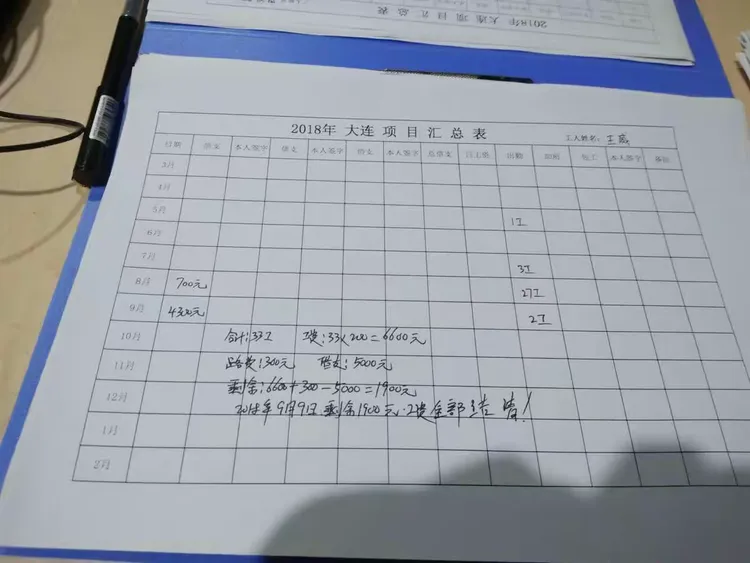 2018年 大连项目汇总表
2018年 大连 项 目 汇 总 表
工人姓名:
日期 借支 本人签字 借支 本人签字 借支 本人签字 总借支 日工资 出勤 加班 总工 本人签字 备注
3月
4月
5月 1工
6月
7月 3工
8月 700元 27工
9月 4300元 2工
10月 合计:33工 工资:33×200=6600元
11月 路费:300元 借支:5000元
12月 剩余:6600+300-5000=1900元
2018年9月9日剩余1900元.工资全部结清!
1月
2月